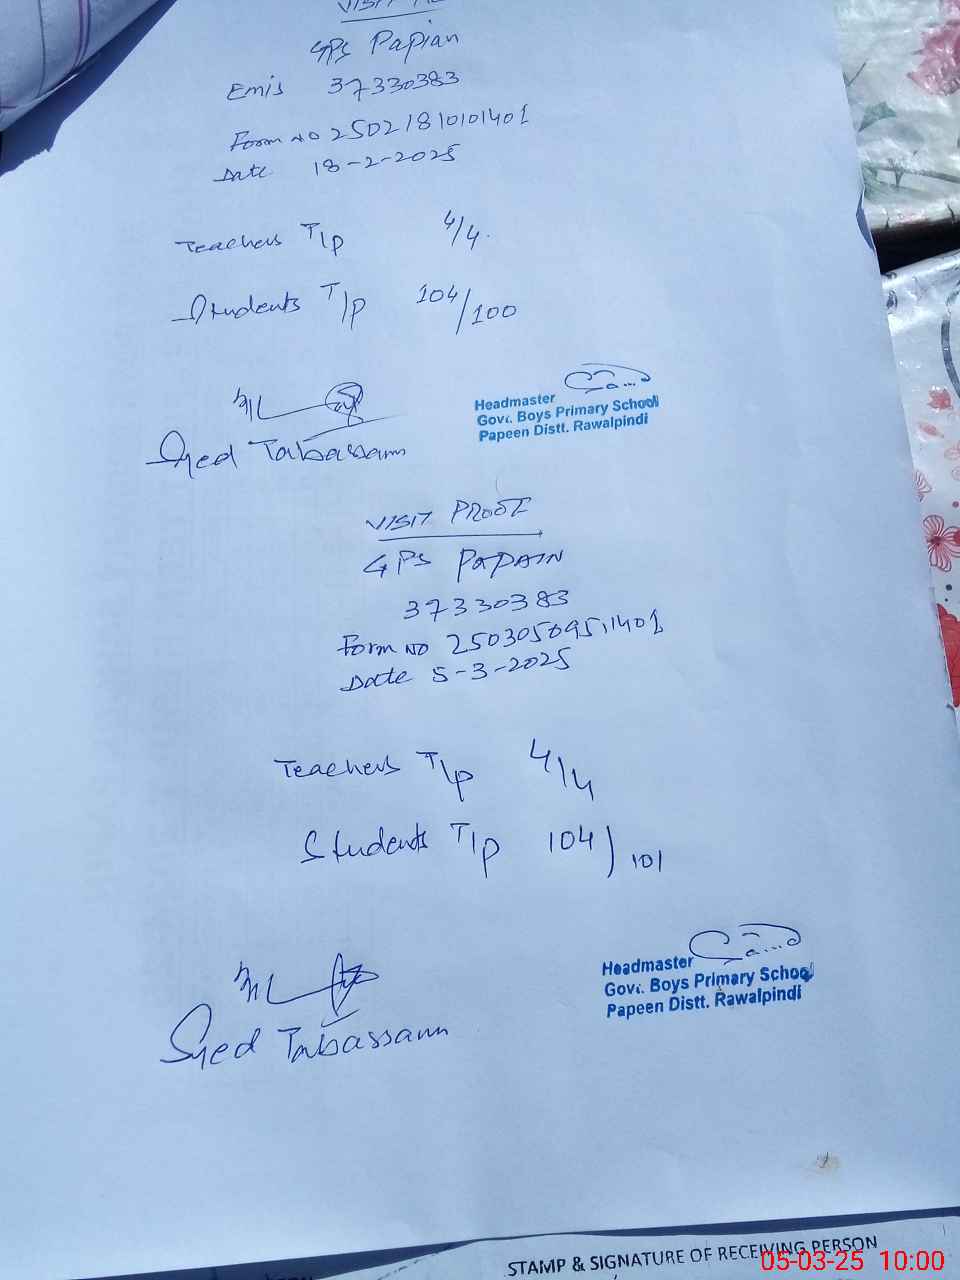 GPS Papian
Emis 37330383
Form no 25021810101401
Date 18-2-2025
Teachers T/P 4/4
Students T/P 104/100
Syed Tabassam
Headmaster
Govt. Boys Primary School
Papeen Distt. Rawalpindi
VISIT PROOF
GPS PAPAIN
37330383
Form NO 25030509511401
Date 5-3-2025
Teachers T/P 4/4
Students T/P 104/101
Syed Tabassam
Headmaster
Govt. Boys Primary School
Papeen Distt. Rawalpindi
STAMP & SIGNATURE OF RECEIVING PERSON
05-03-25 10:00